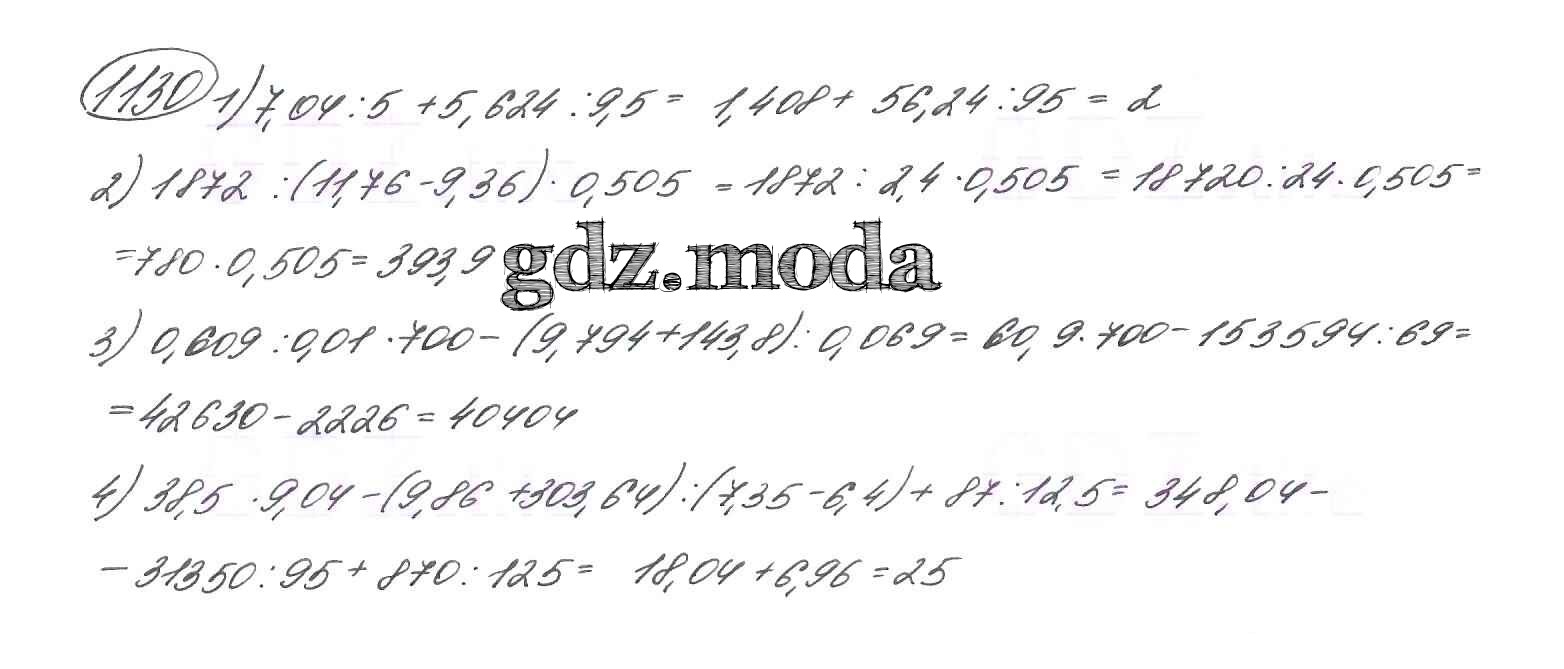 1130 1) 7,04 : 5 + 5,624 : 9,5 = 1,408 + 56,24 : 95 = 2
2) 1872 : (11,76 - 9,36) · 0,505 = 1872 : 2,4 · 0,505 = 18720 : 24 · 0,505 =
= 780 · 0,505 = 393,9
gdz.moda
3) 0,609 : 0,01 · 700 - (9,794 + 143,8) : 0,069 = 60,9 · 700 - 153594 : 69 =
= 42630 - 2226 = 40404
4) 38,5 · 9,04 - (9,86 + 303,64) : (7,35 - 6,4) + 87 : 12,5 = 348,04 -
- 31350 : 95 + 870 : 125 = 18,04 + 6,96 = 25